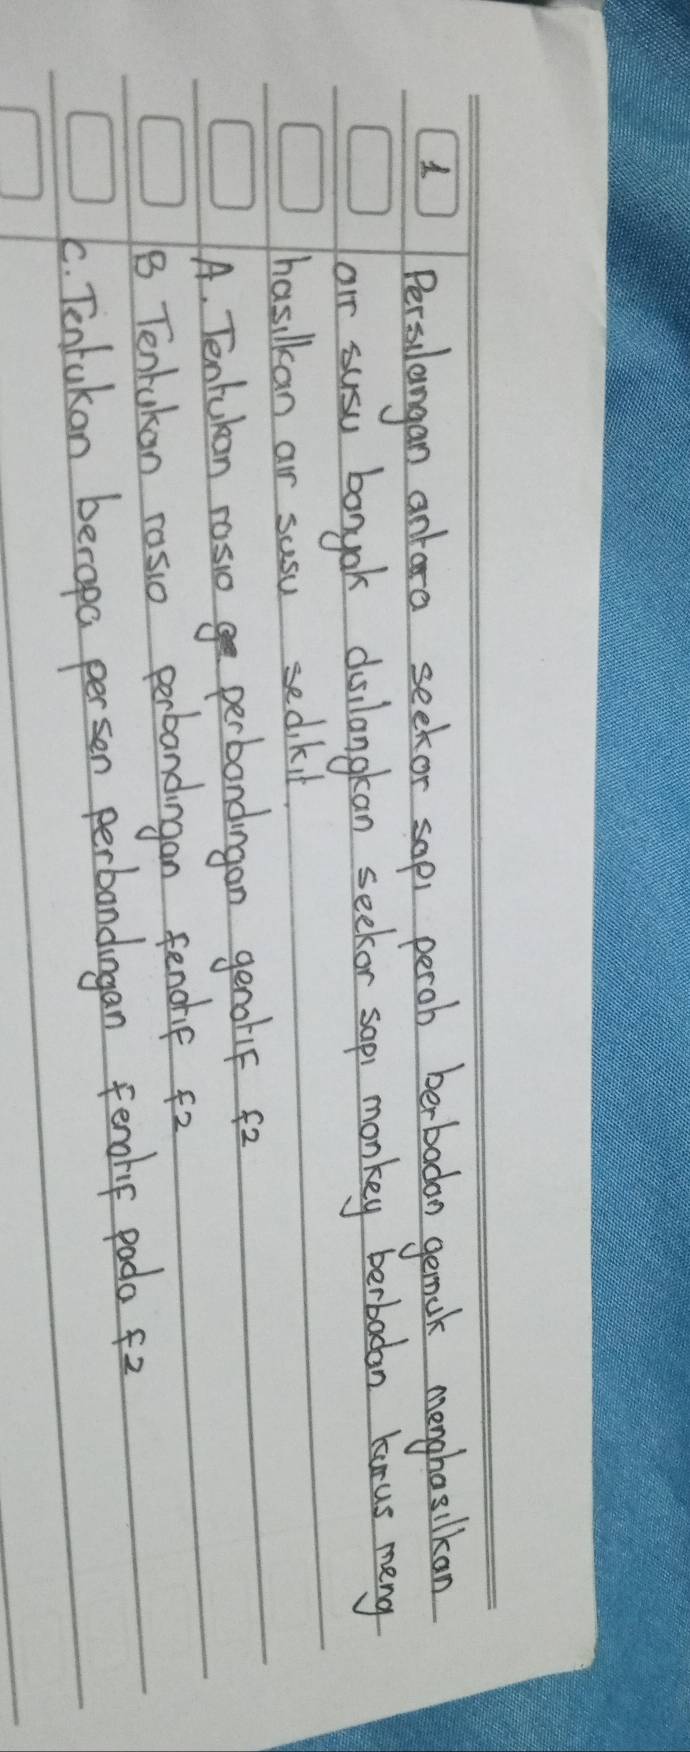 1 Persilangan antara seekor sapi perah berbadan gemuk menghasilkan
air susu banyak disilangkan seekor sapi monkey berbadan kurus meng
hasilkan air susu sedikit.
A. Tentukan rasio perbandingan genotif f2
B Tentukan rasio perbandingan fenotif f2
C. Tentukan berapa persen perbandingan fenotif pada f2